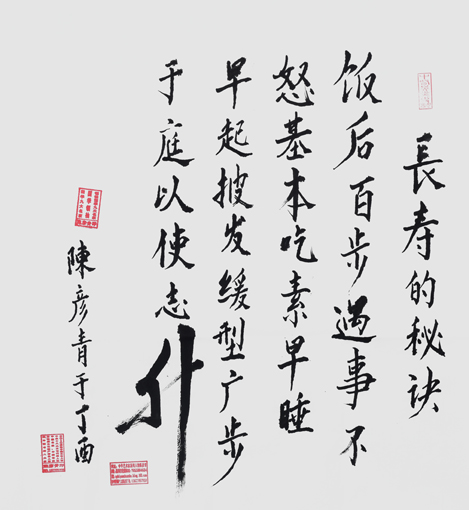 長寿的秘诀
饭后百步遇事不
怒基本吃素早睡
早起披发缓型广步
于庭以使志升
陳彦青于丁酉